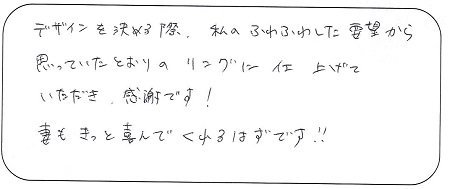 デザインを決める際、私のふわふわした要望から
思っていたとおりのリングに仕上げて
いただき、感謝です!
妻もきっと喜んでくれるはずです!!